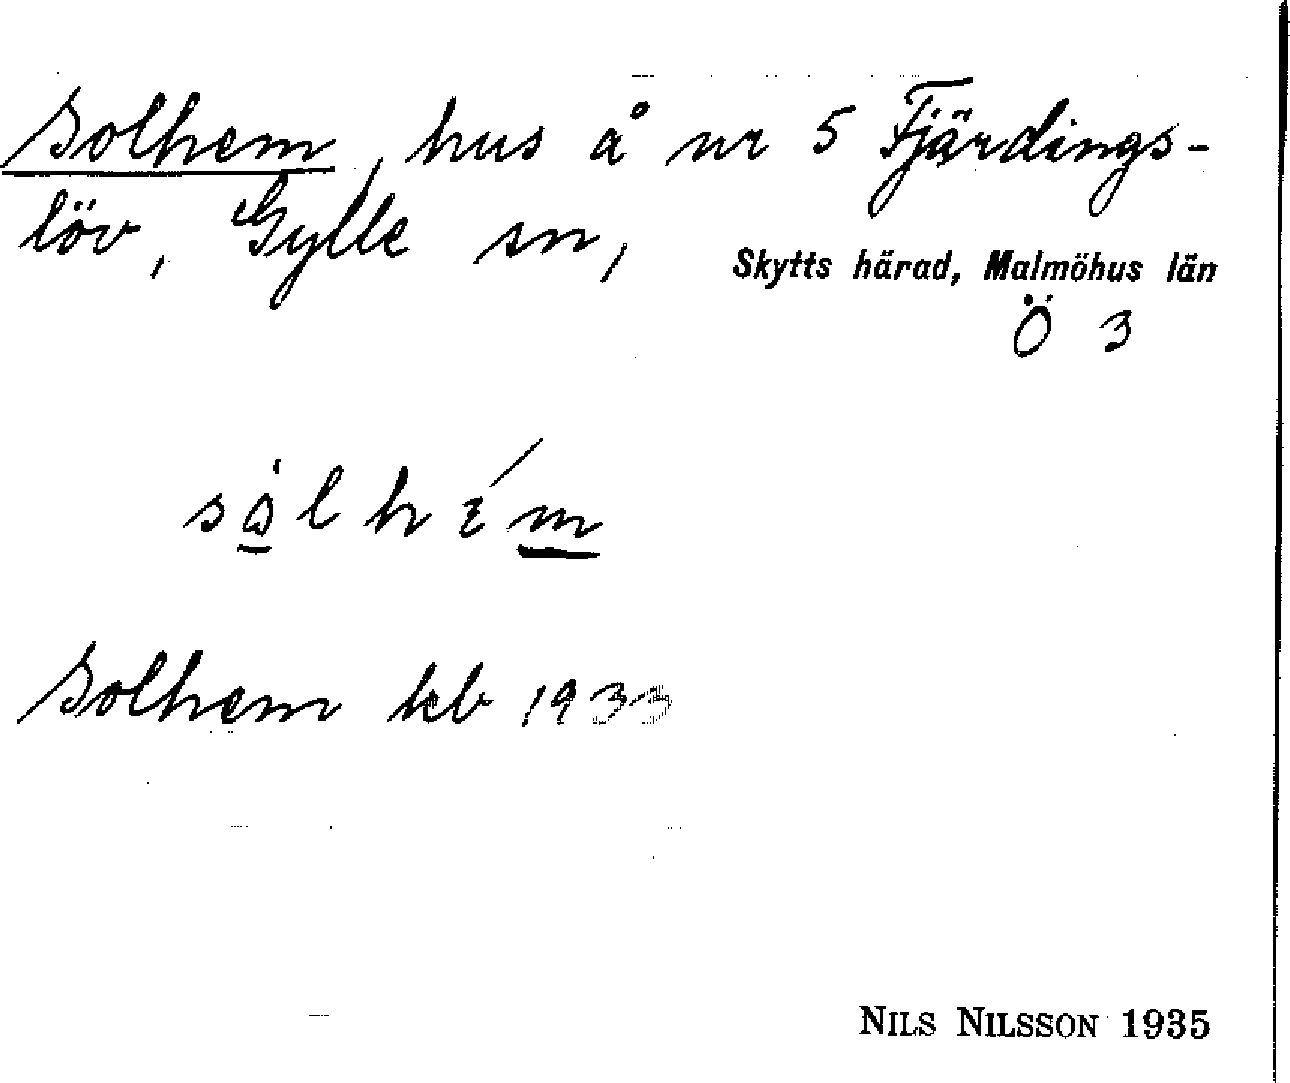 Solhem, hus å nr 5 Fjärdings-
löv, Gylle sn,
Skytts härad, Malmöhus län
Ö 3
Solhem kb 1933
NILS NILSSON 1935